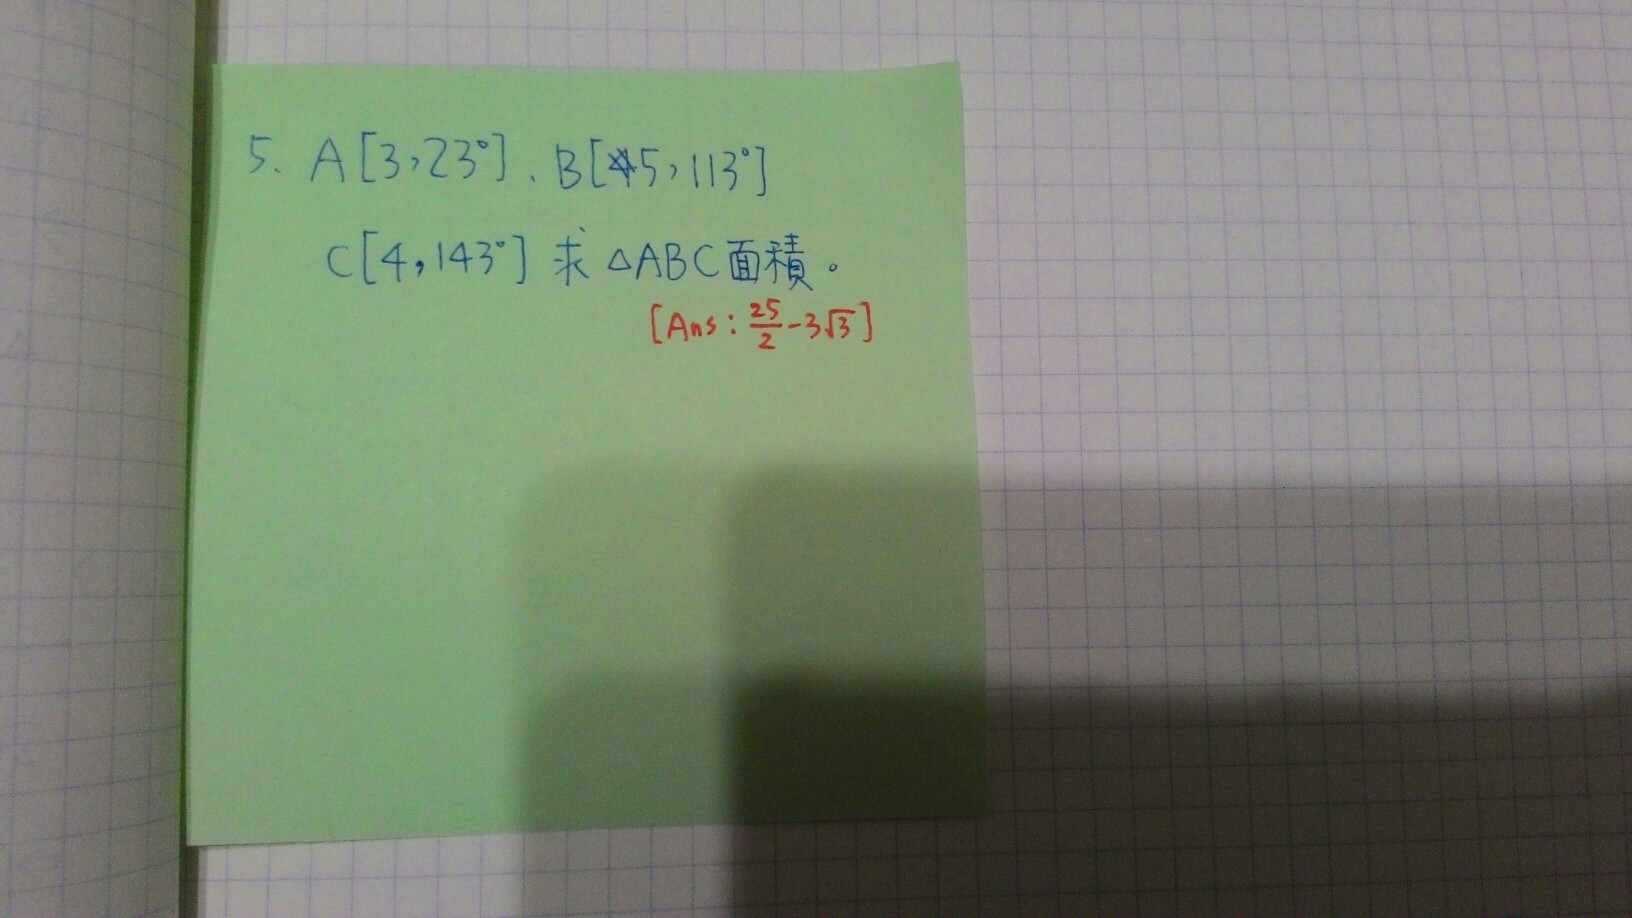 5. A[3,23°]、B[5,113°]
C[4,143°] 求 △ABC 面積。
[Ans: 25/2 - 3√3]